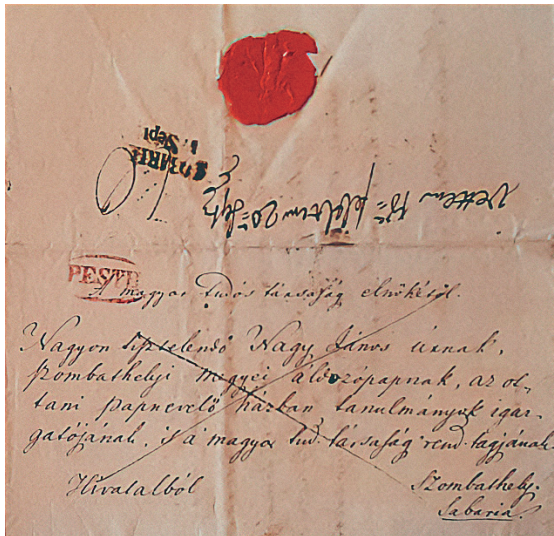 Vettem 18ª feleltem 20ª Sept
PESTH
A magyar tudós társaság elnökétől.
Nagyon tisztelendő Nagy János úrnak,
szombathelyi megyei áldozópapnak, az ot-
tani papnevelő házban tanulmányok igaz-
gatójának, és a magyar tud. társaság rend. tagjának.
Hivatalból
Szombathely.
Sabaria.